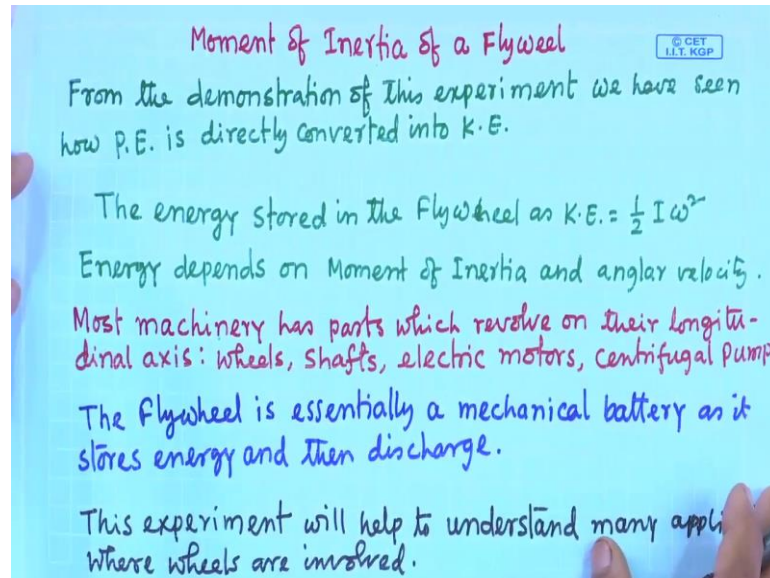 Moment of Inertia of a Flyweel
© CET
I.I.T. KGP
From the demonstration of This experiment we have seen
how P.E. is directly converted into K.E.
The energy stored in the Flywheel as K.E. = ½ I ω²
Energy depends on Moment of Inertia and anglar velocity.
Most machinery has parts which revolve on their longitu-
dinal axis: wheels, shafts, electric motors, centrifugal pump
The flywheel is essentially a mechanical battery as it
stores energy and then discharge.
This experiment will help to understand many appli
where wheels are involved.